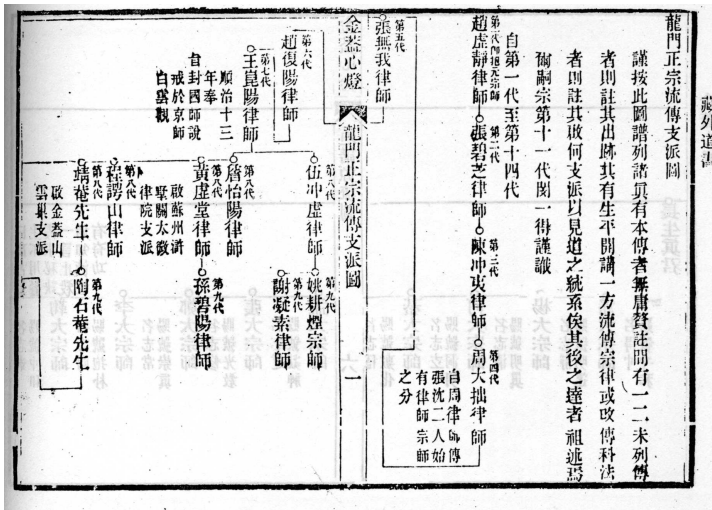 藏外道書
龍門正宗流傳支派圖
謹按此圖譜列諸眞有本傳者無庸贅註間有一二未列傳
者則註其出跡其有生平開講一方流傳宗律或改傳科法
者則註其啟何支派以見道之統系俟其後之達者祖述焉
爾嗣宗第十一代閔一得謹識
自第一代至第十四代
第一代卽祖元宗師
趙虛靜律師
第二代
張碧芝律師
第三代
陳冲夷律師
第四代
周大拙律師
自周律師傳
張沈二人始
有律師宗師
之分
第五代
張無我律師
金蓋心燈
龍門正宗流傳支派圖
一
第六代
趙復陽律師
第七代
王崑陽律師
順治十三
年奉
旨封國師說
戒於京師
白雲觀
第八代
伍冲虛律師
第九代
姚耕煙宗師
第九代
謝凝素律師
第八代
詹怡陽律師
第八代
黃虛堂律師
啟蘇州滸
墅關太微
律院支派
第九代
孫碧陽律師
第八代
程諤山律師
第八代
靖菴先生
啟金蓋山
雲巢支派
第九代
陶石菴先生